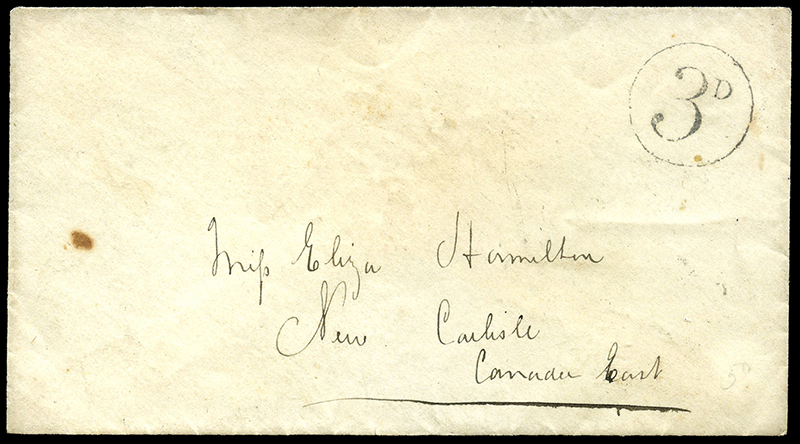 3D
Miss Eliza Hamilton
New Carlisle
Canada East